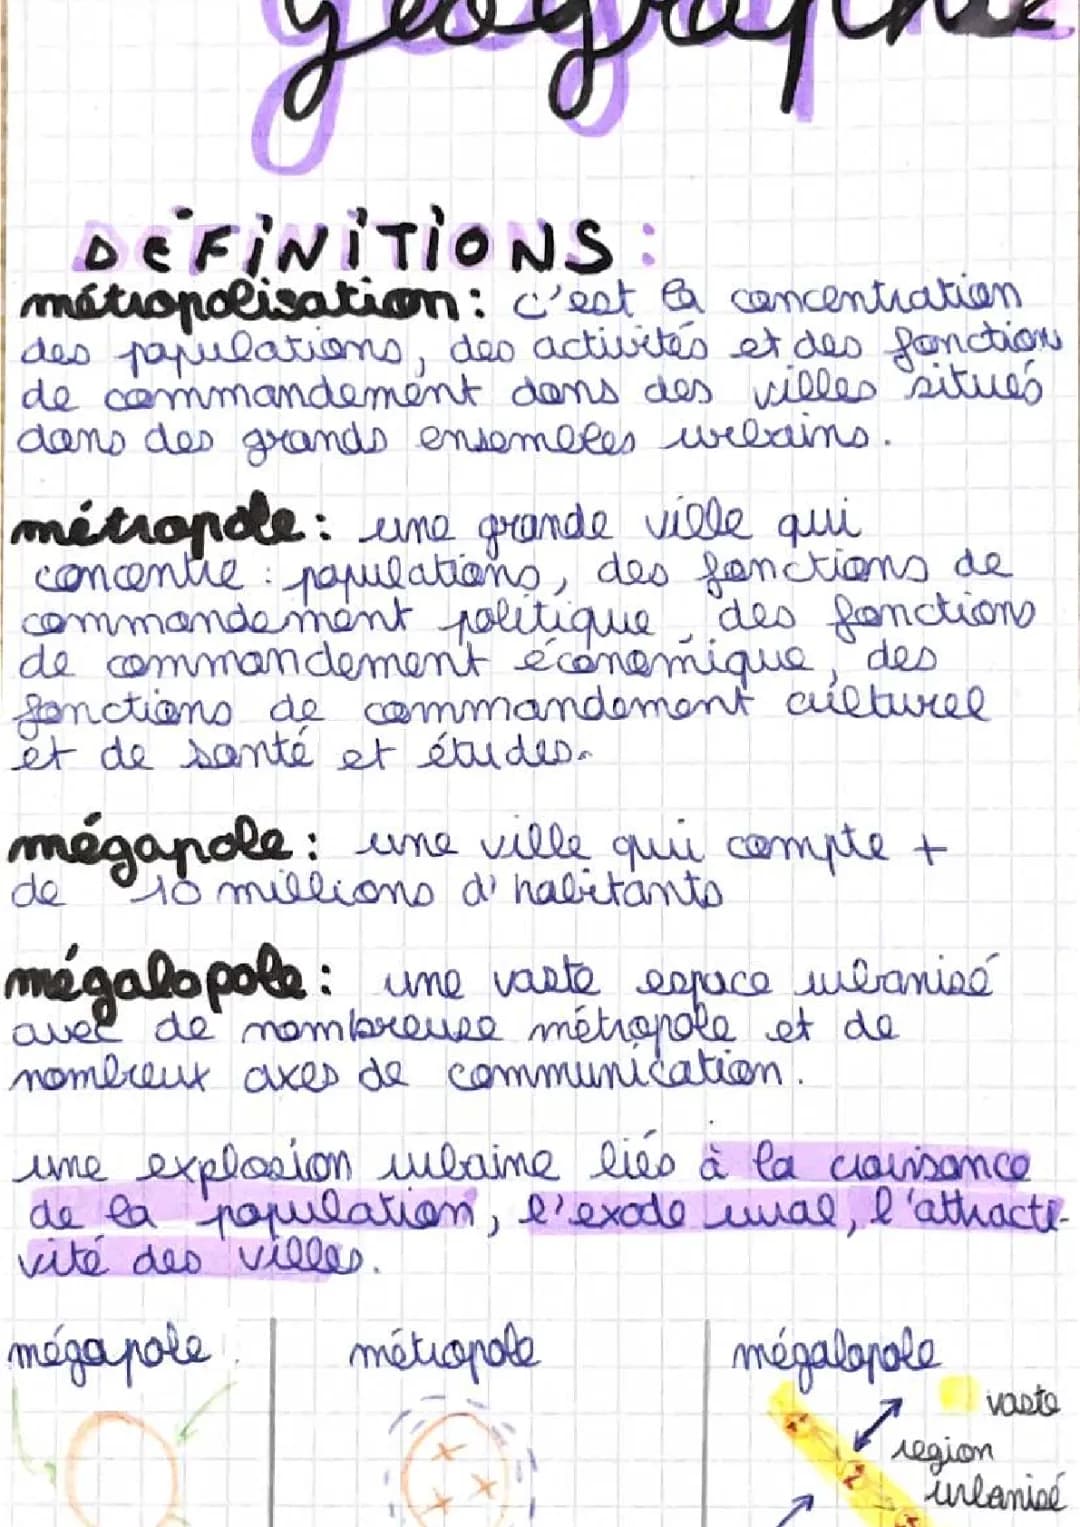 géographie
DÉFINITIONS :
métropolisation : c'est la concentration
des populations, des activités et des fonctions
de commandement dans des villes situés
dans des grands ensembles urbains.
métropole : une grande ville qui
concentre : populations, des fonctions de
commandement politique, des fonctions
de commandement économique, des
fonctions de commandement culturel
et de santé et études.
mégapole : une ville qui compte +
de 10 millions d'habitants
mégalopole : une vaste espace urbanisé
avec de nombreuse métropole et de
nombreux axes de communication.
une explosion urbaine liés à la croissance
de la population, l'exode rural, l'attracti-
vité des villes.
mégapole métropole mégalopole
vaste
region
urbanisé